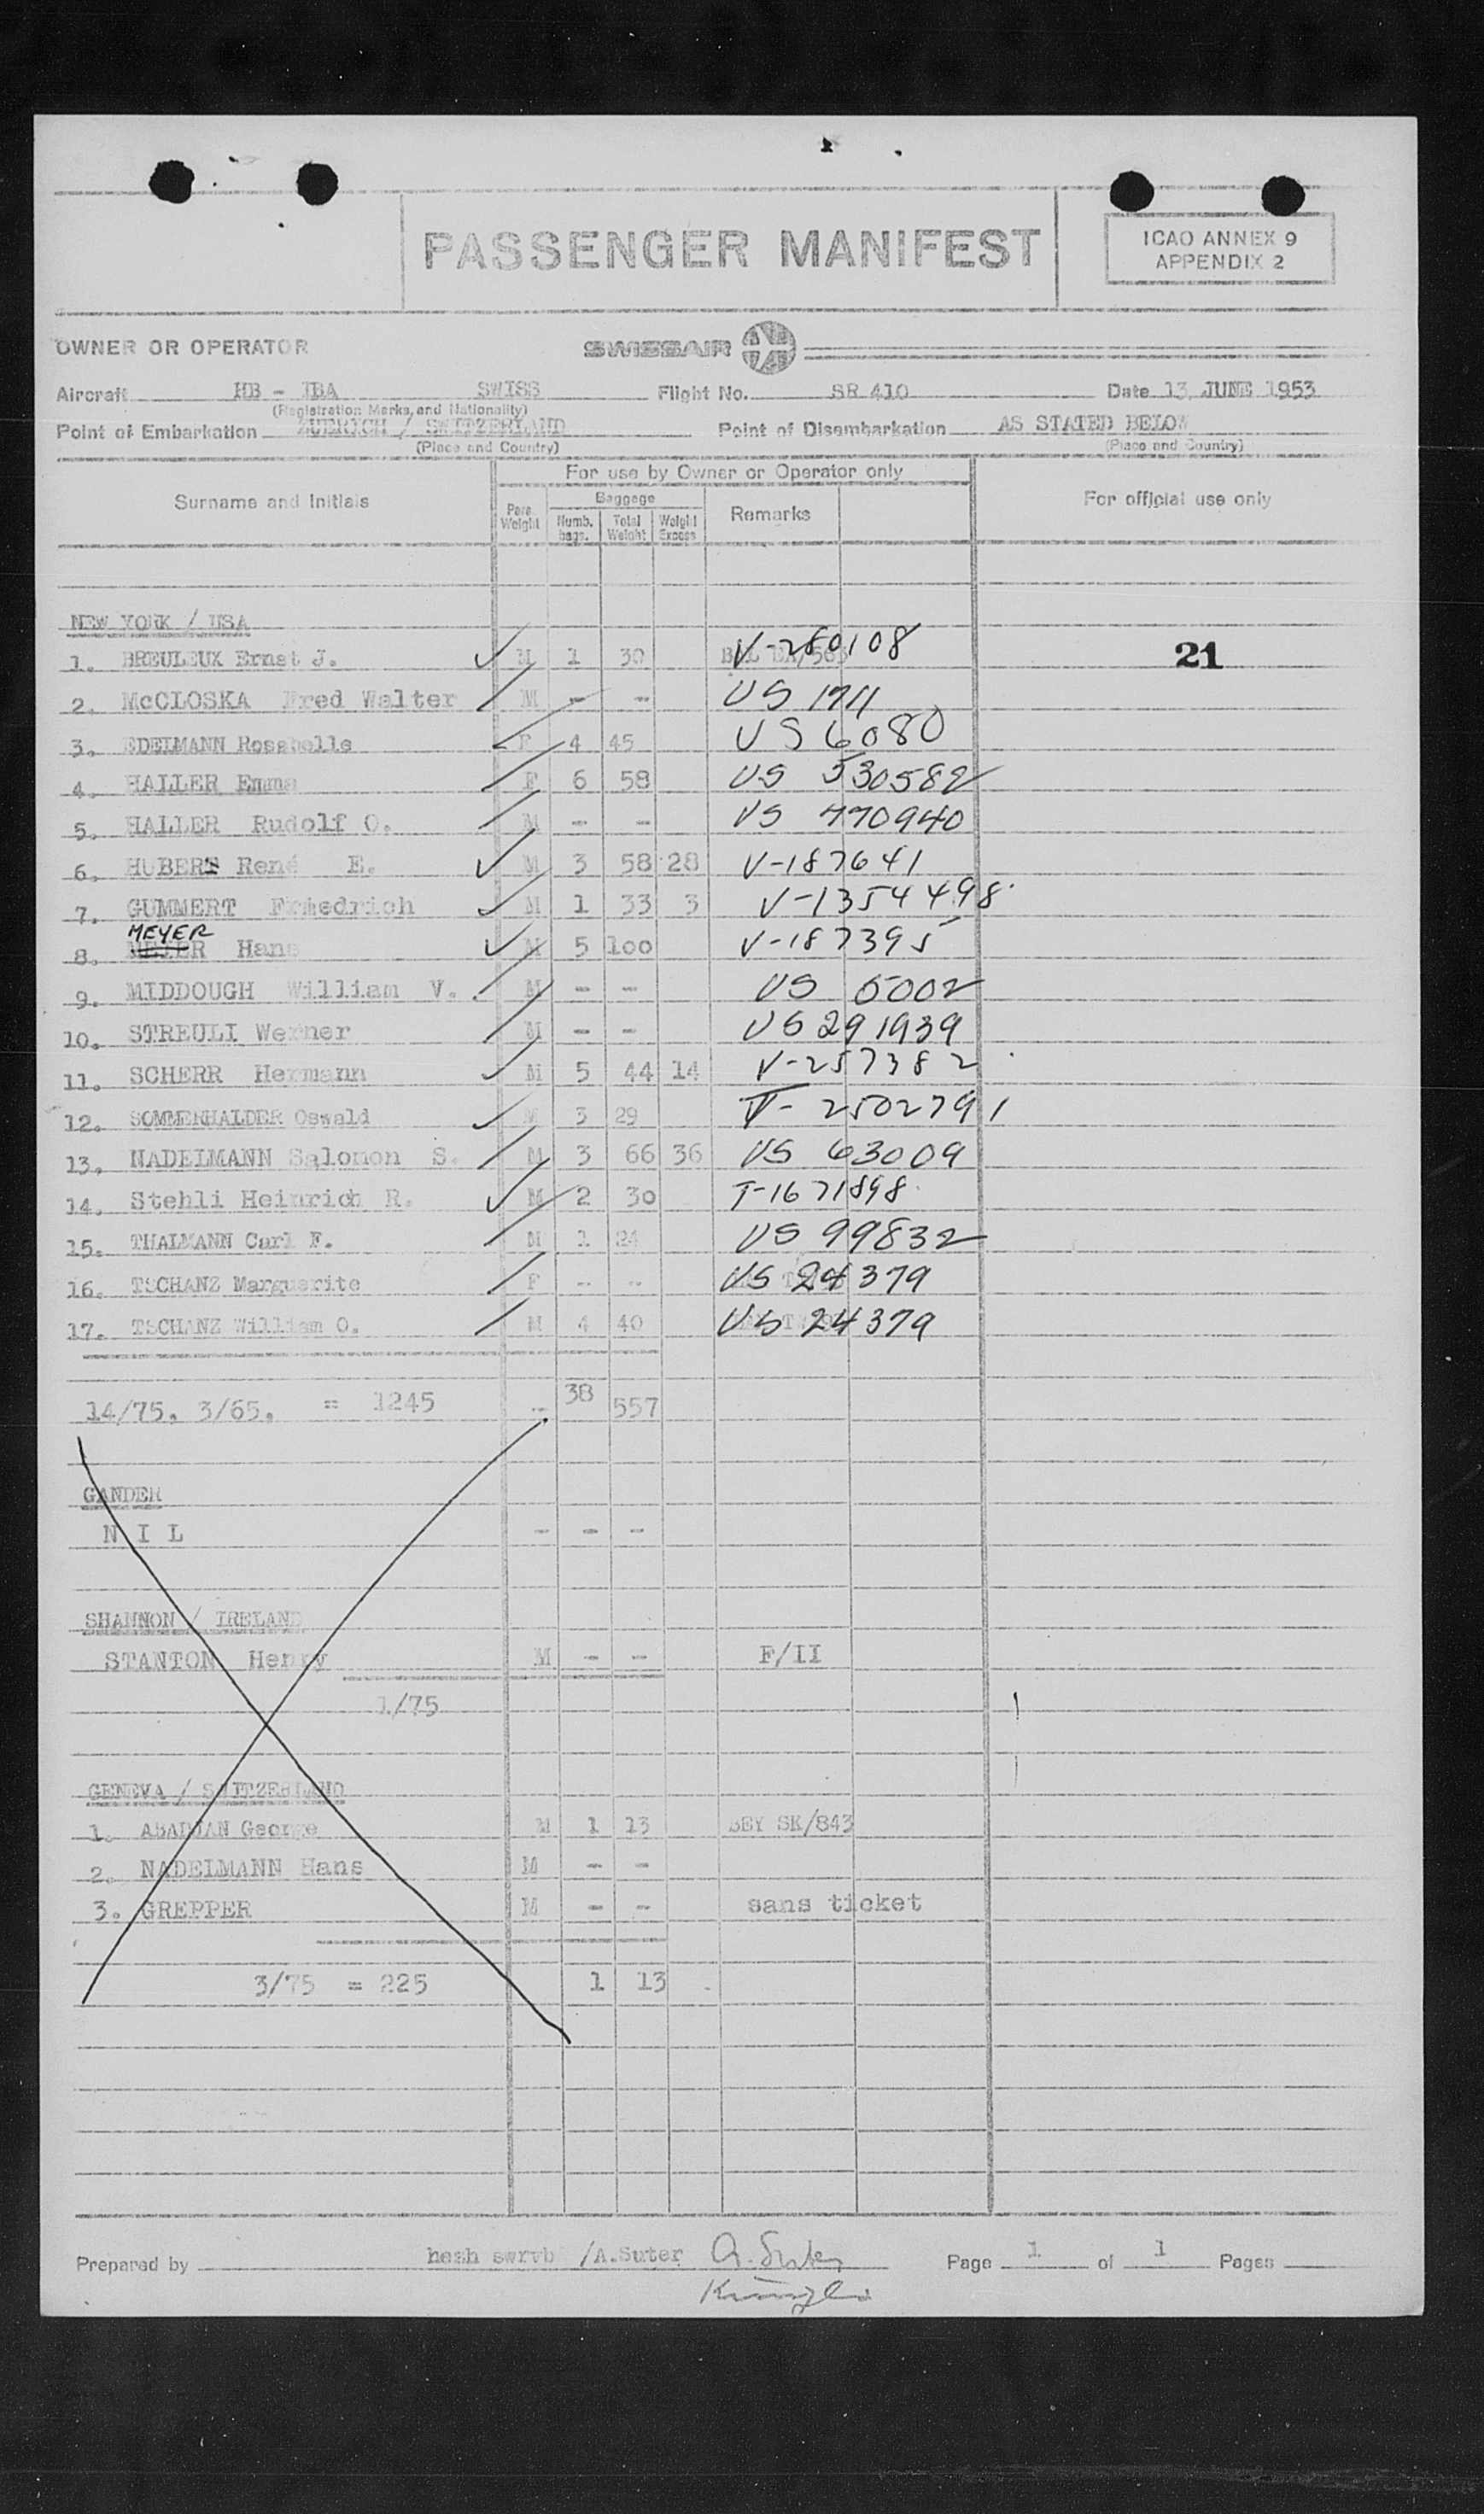 PASSENGER MANIFEST
ICAO ANNEX 9
APPENDIX 2
OWNER OR OPERATOR SWISSAIR
Aircraft HB - IBA SWISS Flight No. SR 410 Date 13 JUNE 1953
(Registration Marks, and Nationality)
Point of Embarkation ZUERICH / SWITZERLAND Point of Disembarkation AS STATED BELOW
(Place and Country) (Place and Country)
For use by Owner or Operator only
Surname and Initials Pass. Weight Baggage Numb. bags. Total Weight Weight Excess Remarks For official use only
NEW YORK / USA
1. BREULEUX Ernst J. M 1 30 V-280108 21
2. McCLOSKA Fred Walter M - - US 1711
3. EDELMANN Rosabelle F 4 45 US 6080
4. HALLER Emma F 6 58 US 530582
5. HALLER Rudolf O. M - - US 770940
6. HUBERT René E. M 3 58 28 V-187641
7. GUMMERT Friedrich M 1 33 3 V-1354498
MEYER
8. Hans M 5 100 V-187395
9. MIDDOUGH William V. M - - US 5002
10. STREULI Werner M - - US 291939
11. SCHERR Hermann M 5 44 14 V-257382
12. SOMMERHALDER Oswald M 3 29 V- 2502791
13. NADELMANN Salomon S. M 3 66 36 US 63009
14. Stehli Heinrich R. M 2 30 T-1671898
15. THALMANN Carl F. M 1 24 US 99832
16. TSCHANZ Marguerite F - - US 24379
17. TSCHANZ William O. M 4 40 US 24379
14/75, 3/65, = 1245 - 38 557
GANDER
N I L - - -
SHANNON / IRELAND
STANTON Henry M - - F/II
1/75
GENEVA / SWITZERLAND
1. ABADJIAN George M 1 13 BEY SK/843
2. NADELMANN Hans M - -
3. GREPPER M - - sans ticket
3/75 = 225 1 13
Prepared by hesh swrvb /A.Suter A. Suter Page 1 of 1 Pages